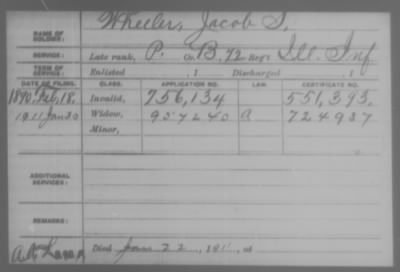 NAME OF SOLDIER: Wheeler, Jacob S.
SERVICE: Late rank, P. Co. B, 72 Reg't Ill. Inf
TERM OF SERVICE: Enlisted , 1 Discharged , 1
DATE OF FILING. CLASS. APPLICATION NO. LAW. CERTIFICATE NO.
1890 Feb, 18. Invalid, 756,134 551,393,
1911 Jan 30 Widow, 957240 a 724937
Minor,
ADDITIONAL SERVICES:
REMARKS:
Died Jan 22, 1911, at